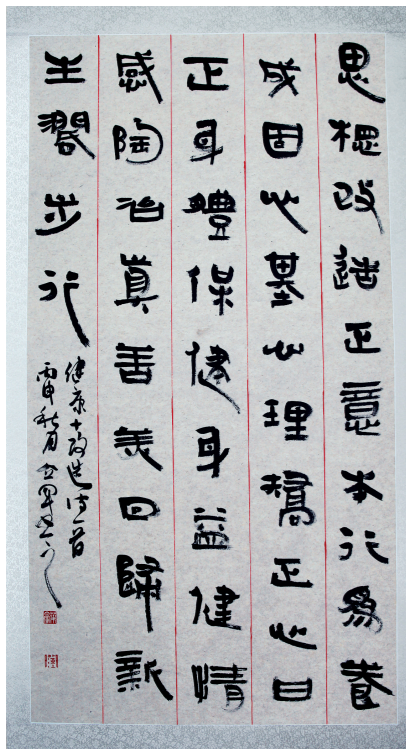 思想改造正意本行為養
成固心基心理矯正心日
正身體保健身益健情
感陶冶真善美回歸新
生闊步行
健康改造诗一首
丙申秋月